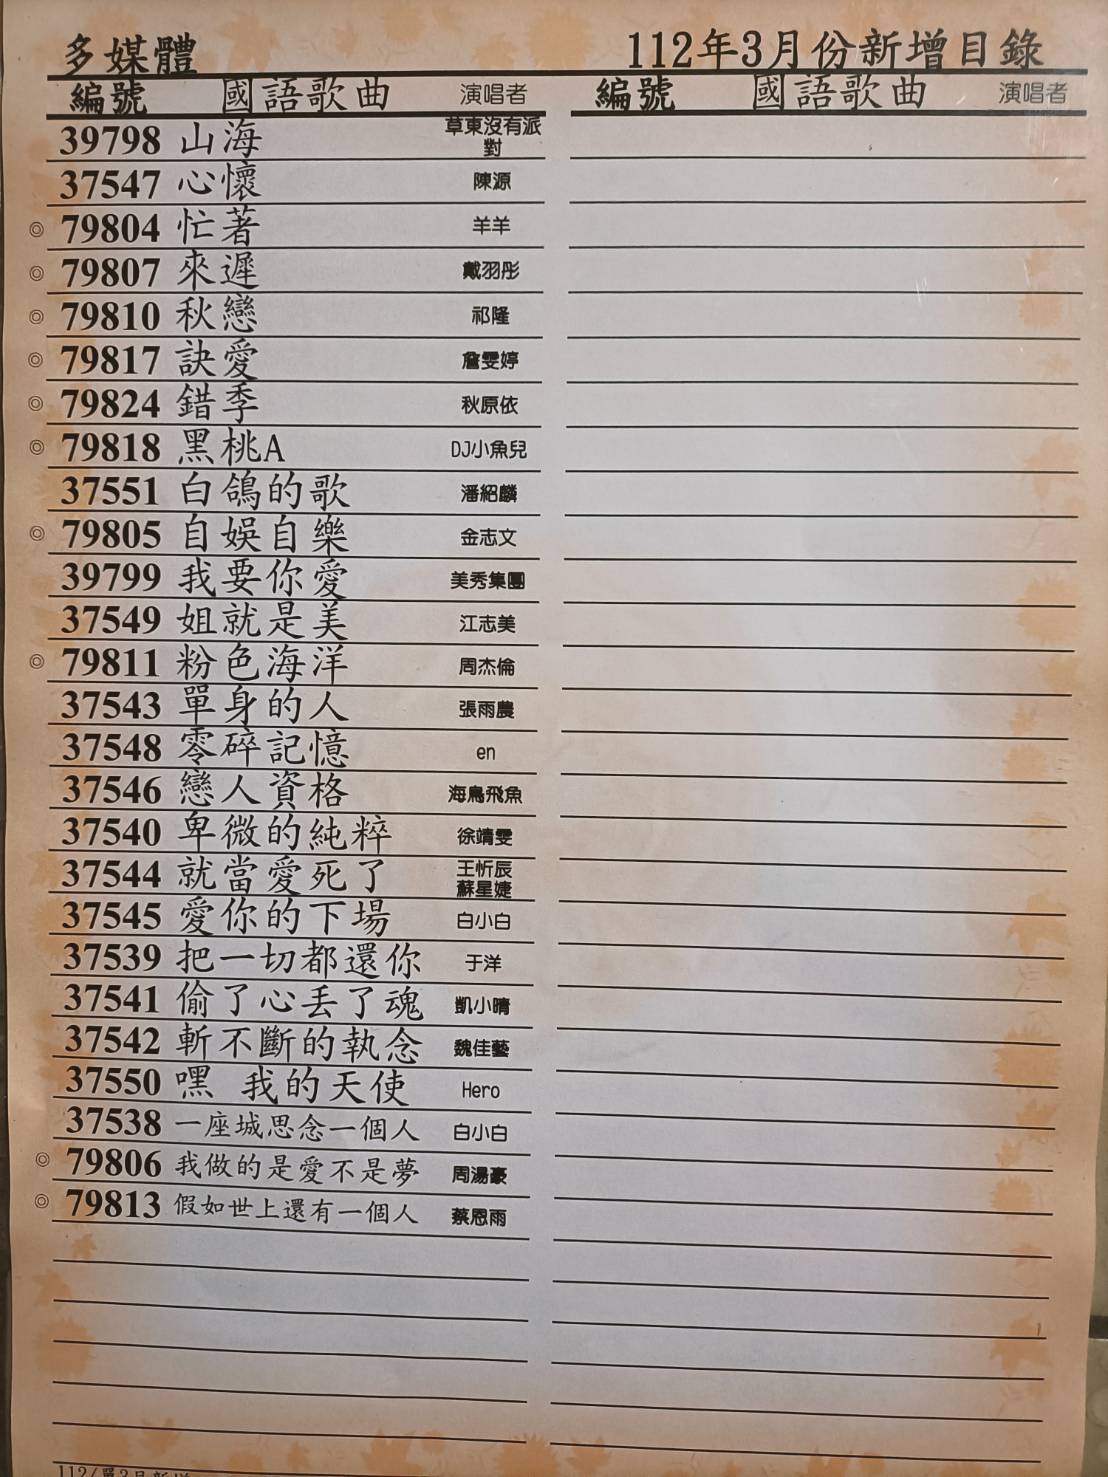 多媒體 112年3月份新增目錄
編號 國語歌曲 演唱者 編號 國語歌曲 演唱者
39798 山海 草東沒有派對
37547 心懷 陳源
◎ 79804 忙著 羊羊
◎ 79807 來遲 戴羽彤
◎ 79810 秋戀 祁隆
◎ 79817 訣愛 詹雯婷
◎ 79824 錯季 秋原依
◎ 79818 黑桃A DJ小魚兒
37551 白鴿的歌 潘紹麟
◎ 79805 自娛自樂 金志文
39799 我要你愛 美秀集團
37549 姐就是美 江志美
◎ 79811 粉色海洋 周杰倫
37543 單身的人 張雨農
37548 零碎記憶 en
37546 戀人資格 海鳥飛魚
37540 卑微的純粹 徐靖雯
37544 就當愛死了 王忻辰 蘇星婕
37545 愛你的下場 白小白
37539 把一切都還你 于洋
37541 偷了心丟了魂 凱小晴
37542 斬不斷的執念 魏佳藝
37550 嘿 我的天使 Hero
37538 一座城思念一個人 白小白
◎ 79806 我做的是愛不是夢 周湯豪
◎ 79813 假如世上還有一個人 蔡恩雨